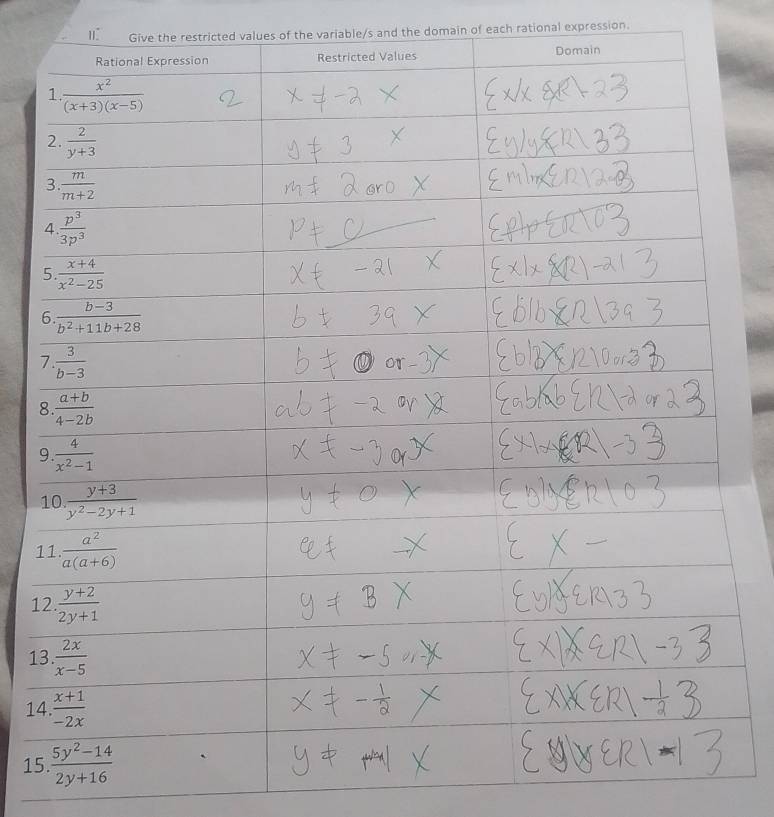 II. Give the restricted values of the variable/s and the domain of each rational expression.
Rational Expression Restricted Values Domain
1. x²/((x+3)(x−5)) 2 x ≠ -2 x {x/x ∈R\-2}
2. 2/(y+3) y ≠ 3 x {y/y∈R\3}
3. m/(m+2) m ≠ 2 or 0 x
4. p³/3p³ p ≠ 0 {p|p∈R\0}
5. (x+4)/(x²−25) x ≠ -21 x {x|x∈R\-21}
6. (b−3)/(b²+11b+28) b ≠ 39 x {b|b∈R\39}
7. 3/(b−3) b ≠ 0 or -3 x {b|b∈R\0 or 3}
8. (a+b)/(4−2b) ab ≠ -2 or 2 {ab|ab∈R\-2 or 2}
9. 4/(x²−1) x ≠ -3 or x {x|x∈R\-3}
10. (y+3)/(y²−2y+1) y ≠ 0 x {y|y∈R\0}
11. a²/(a(a+6)) ≠ x { x -
12. (y+2)/(2y+1) y ≠ 3 x {y|y∈R\3}
13. 2x/(x−5) x ≠ -5 or x {x|x∈R\-3}
14. (x+1)/(−2x) x ≠ -1/2 x {x|x∈R\-1/2}
15. (5y²−14)/(2y+16) y ≠ 1 x {y|y∈R\-1}